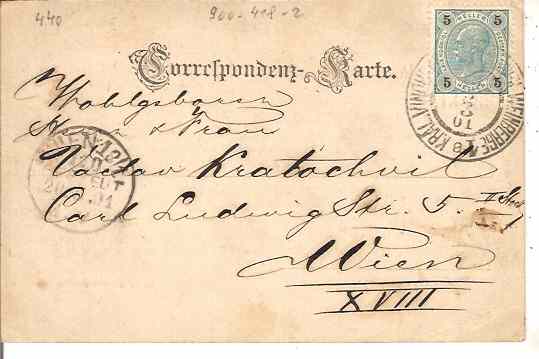 440
900-418-2
Correspondenz-Karte.
5 5
5 5
Wohlgeborn
Herr & Frau
Vaclav Kratochvil
Carl Ludwig Str. 5. II Stock
Wien
XVIII